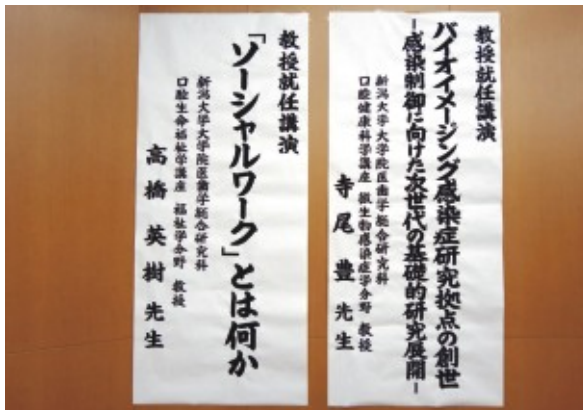 教授就任講演
バイオイメージング感染症研究拠点の創世
－感染制御に向けた次世代の基礎的研究展開－
新潟大学大学院医歯学総合研究科
口腔健康科学講座 微生物感染症学分野 教授
寺尾 豊 先生
教授就任講演
「ソーシャルワーク」とは何か
新潟大学大学院医歯学総合研究科
口腔生命福祉学講座 福祉学分野 教授
高橋 英樹 先生